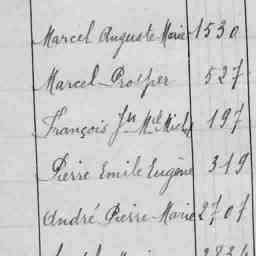 Marcel Auguste Marie 1530
Marcel Prosper 527
François Jn Mie Michel 197
Pierre Emile Eugène 319
André Pierre Marie 2707